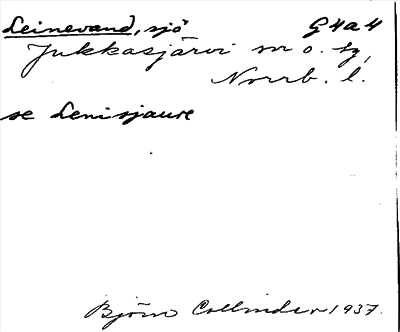 Leinevand, sjö G4a4
Jukkasjärvi sn o. tg,
Norrb. l.
se Lenisjaure
Björn Collinder 1937.